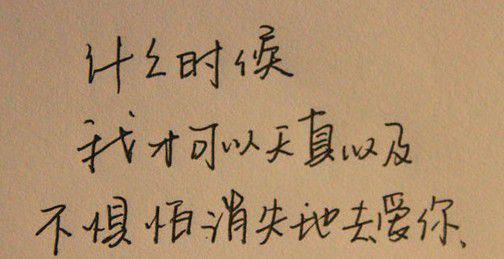 什么时候
我才可以天真以及
不惧怕消失地去爱你、